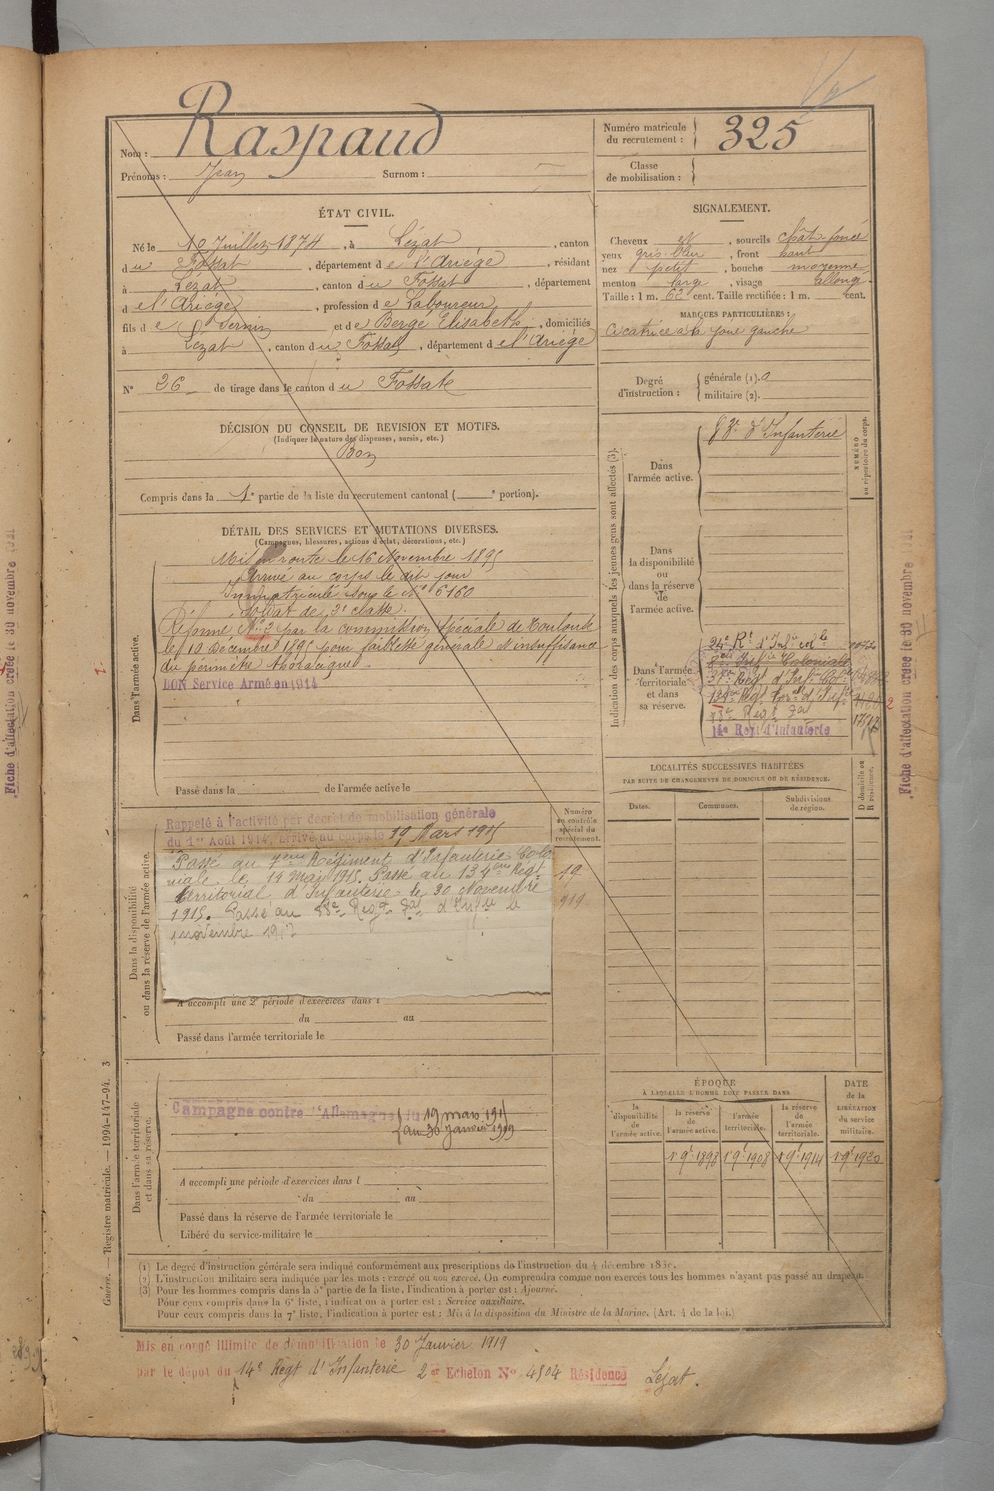 Nom : Raspaud
Prénoms : Jean Surnom :
Numéro matricule
du recrutement : 325
Classe
de mobilisation :
ÉTAT CIVIL.
Né le 10 Juillet 1874, à Lézat, canton
du Fossat, département de l'Ariège, résidant
à Lézat, canton du Fossat, département
de l'Ariège, profession de Laboureur
fils de Sernin et de Bergé Elisabeth, domiciliés
à Lézat, canton du Fossat, département de l'Ariège
N° 26 de tirage dans le canton du Fossat
DÉCISION DU CONSEIL DE REVISION ET MOTIFS.
(Indiquer la nature des dispenses, sursis, etc.)
Bon
Compris dans la 1e partie de la liste du recrutement cantonal ( e portion).
DÉTAIL DES SERVICES ET MUTATIONS DIVERSES.
(Campagnes, blessures, actions d'éclat, décorations, etc.)
Dans l'armée active.
Mis en route le 16 Novembre 1895
Arrivé au corps le dit jour
Immatriculé sous le N° 6160
Soldat de 2e classe.
Réformé N° 2 par la commission spéciale de Toulouse
le 10 Décembre 1895 pour faiblesse générale et insuffisance
du périmètre thoracique
BON Service Armé en 1914
Passé dans la de l'armée active le
Numéro
au contrôle
spécial du
recrutement.
Dans la disponibilité
ou dans la réserve de l'armée active.
Rappelé à l'activité par décret de mobilisation générale
du 1er Août 1914, arrivé au corps le 19 Mars 1915
Passé au 7ème Régiment d'Infanterie Colo
niale le 14 mai 1915. Passé au 134ème Régt
territorial d'Infanterie le 30 Novembre
1915. Passé au Regt d'Infie le
novembre 1917
19
919
A accompli une 2e période d'exercices dans l
du au
Passé dans l'armée territoriale le
Dans l'armée territoriale
et dans sa réserve.
Campagne contre l'Allemagne du 19 mars 1915
au 30 Janvier 1919
A accompli une période d'exercices dans l
du au
Passé dans la réserve de l'armée territoriale le
Libéré du service militaire le
SIGNALEMENT.
Cheveux et, sourcils chât. foncé
yeux gris bleu, front haut
nez petit, bouche moyenne
menton large, visage allongé
Taille : 1 m. 62 cent. Taille rectifiée : 1 m. cent.
MARQUES PARTICULIÈRES :
Cicatrice à la joue gauche
Degré
d'instruction :
générale (1). 0
militaire (2).
Indication des corps auxquels les jeunes gens sont affectés (3).
NUMÉRO
au répertoire du corps.
Dans
l'armée active.
83e d'Infanterie
Dans
la disponibilité
ou
dans la réserve
de
l'armée active.
Dans l'armée
territoriale
et dans
sa réserve.
24e Rt d'Infie colle
Infie Coloniale
Régt d'Infie Cole
134e Rgt torial d'Infie
14e Regt d'Infanterie
LOCALITÉS SUCCESSIVES HABITÉES
PAR SUITE DE CHANGEMENTS DE DOMICILE OU DE RÉSIDENCE.
Dates. Communes. Subdivisions
de région.
D domicile ou
R résidence.
ÉPOQUE
À LAQUELLE L'HOMME DOIT PASSER DANS
la
disponibilité
de
l'armée active.
la réserve
de
l'armée active.
l'armée
territoriale.
la réserve
de
l'armée
territoriale.
DATE
de la
LIBÉRATION
du service
militaire.
1 9e 1898 1 9e 1908 1 9e 1914 1 9e 1920
(1) Le degré d'instruction générale sera indiqué conformément aux prescriptions de l'instruction du 4 décembre 1889.
(2) L'instruction militaire sera indiquée par les mots : exercé ou non exercé. On comprendra comme non exercés tous les hommes n'ayant pas passé au drapeau.
(3) Pour les hommes compris dans la 5e partie de la liste, l'indication à porter est : Ajourné.
Pour ceux compris dans la 6e liste, l'indication à porter est : Service auxiliaire.
Pour ceux compris dans la 7e liste, l'indication à porter est : Mis à la disposition du Ministre de la Marine. (Art. 4 de la loi.)
Mis en congé illimité de démobilisation le 30 Janvier 1919
par le dépôt du 14e Régt d'Infanterie 2e Echelon N° 4504 Résidence Lézat.
Guerre. — Registre matricule. — 1994-147-94. 3
Fiche d'affectation créée le 30 novembre 1921
Fiche d'affectation créée le 30 novembre 1921